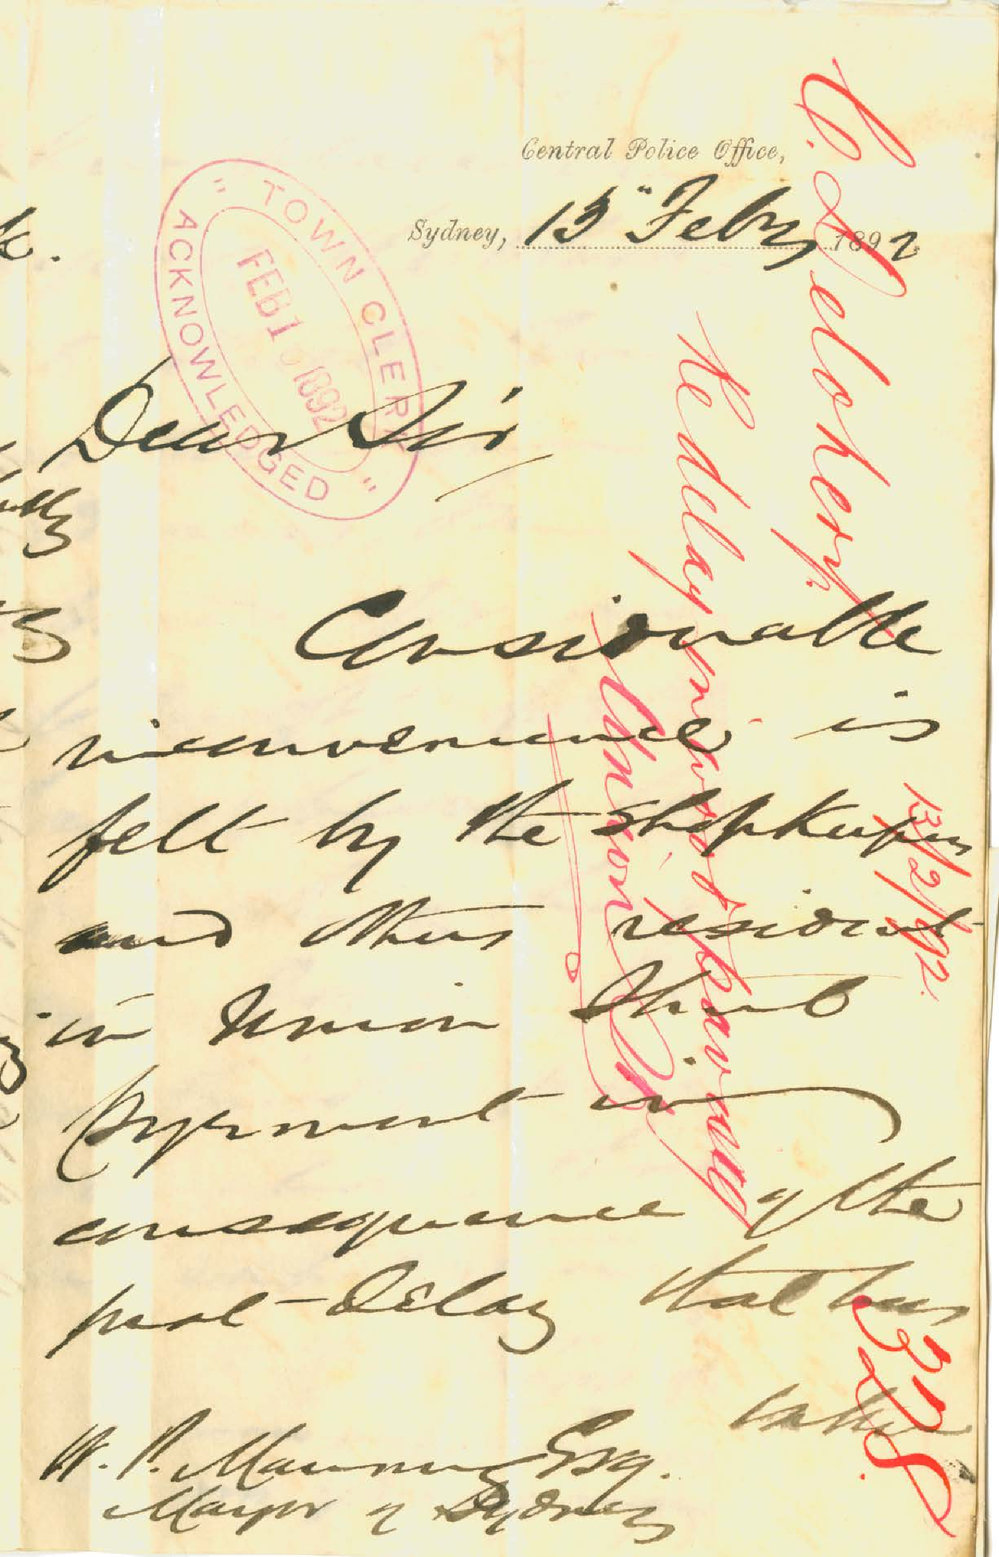 Central Police Office,
Sydney, 13" Feby 1892
" TOWN CLERK "
ACKNOWLEDGED
FEB 1 1892
Dear Sir,
Considerable
inconvenience is
felt by the Shopkeepers
and others resident
in Union Street
Pyrmont in
consequence of the
great delay that has
taken
W. P. Manning Esq.
Mayor of Sydney
C. Delohery
Re delay in wood paving
Union St
13/2/92.
328.